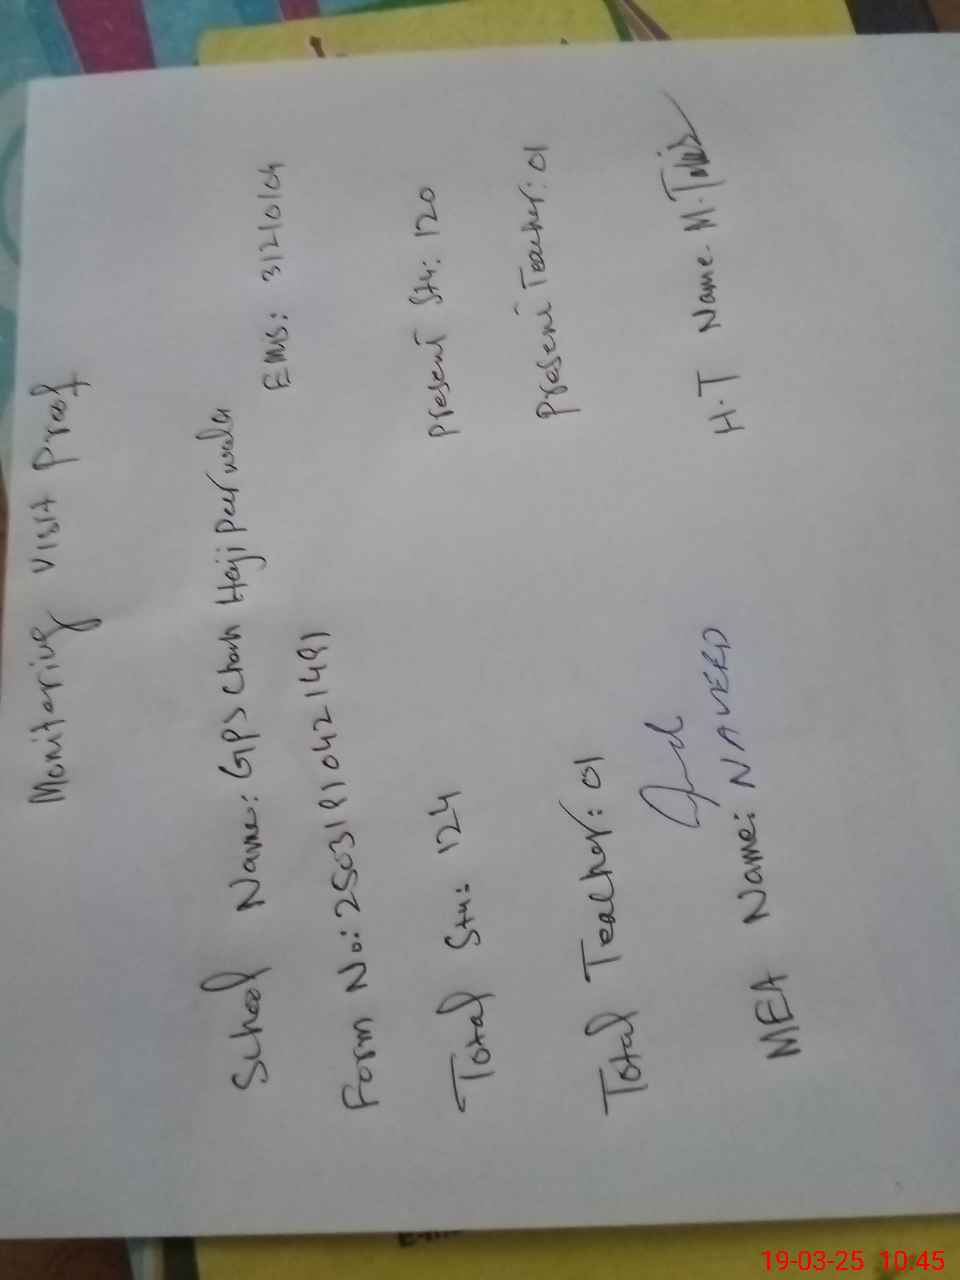 Monitoring Visit Proof
School Name: GPS Chah Haji Peer wala
EMIS: 31210104
Form No: 25031910421491
Total Stu: 124
Present Stu: 120
Total Teacher: 01
Present Teacher: 01
MEA Name: NAVEED
H.T Name M.
19-03-25 10:45